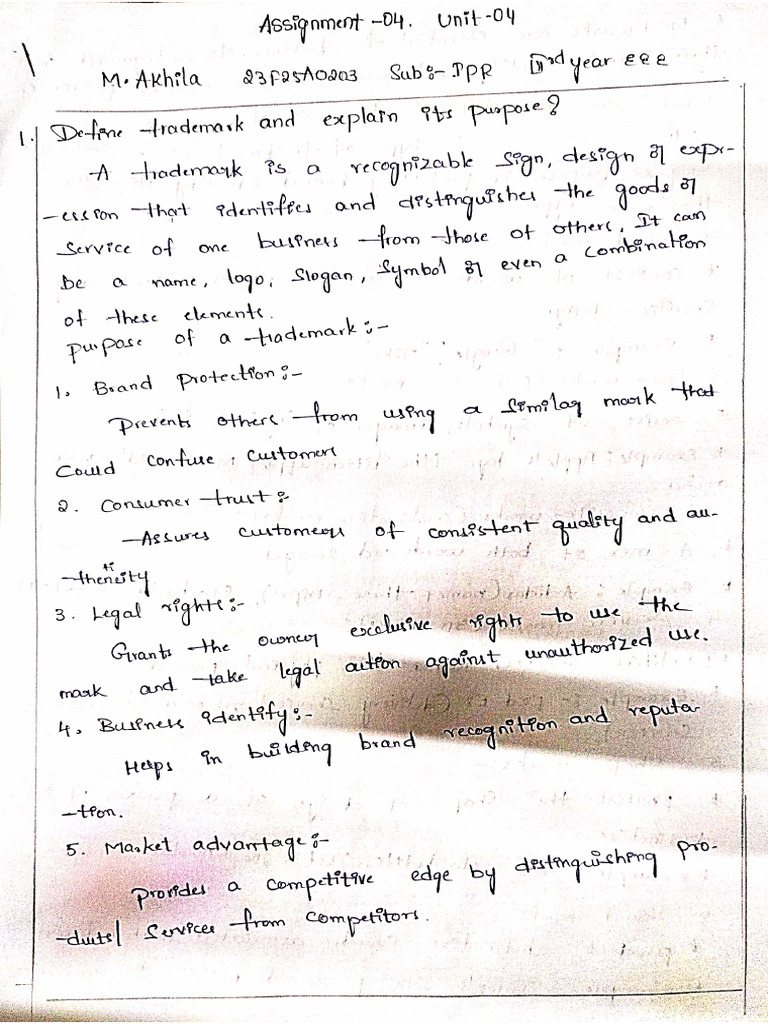 Assignment -04. Unit -04
M. Akhila 23F25A0203 Sub:- IPR IIIrd year EEE
1. Define trademark and explain its purpose?
A trademark is a recognizable sign, design or expr-
-ession that identifies and distinguishes the goods or
service of one business from those of others, It can
be a name, logo, slogan, symbol or even a combination
of these elements.
purpose of a trademark:-
1. Brand protection:-
Prevents others from using a similar mark that
Could confuse customers
2. Consumer trust:-
Assures customers of consistent quality and au-
-thenticity
3. Legal rights:-
Grants the owner exclusive rights to use the
mark and take legal action against unauthorized use.
4. Business identify:-
Helps in building brand recognition and reputa-
-tion.
5. Market advantage:-
provides a competitive edge by distinguishing pro-
-ducts/ services from competitors.